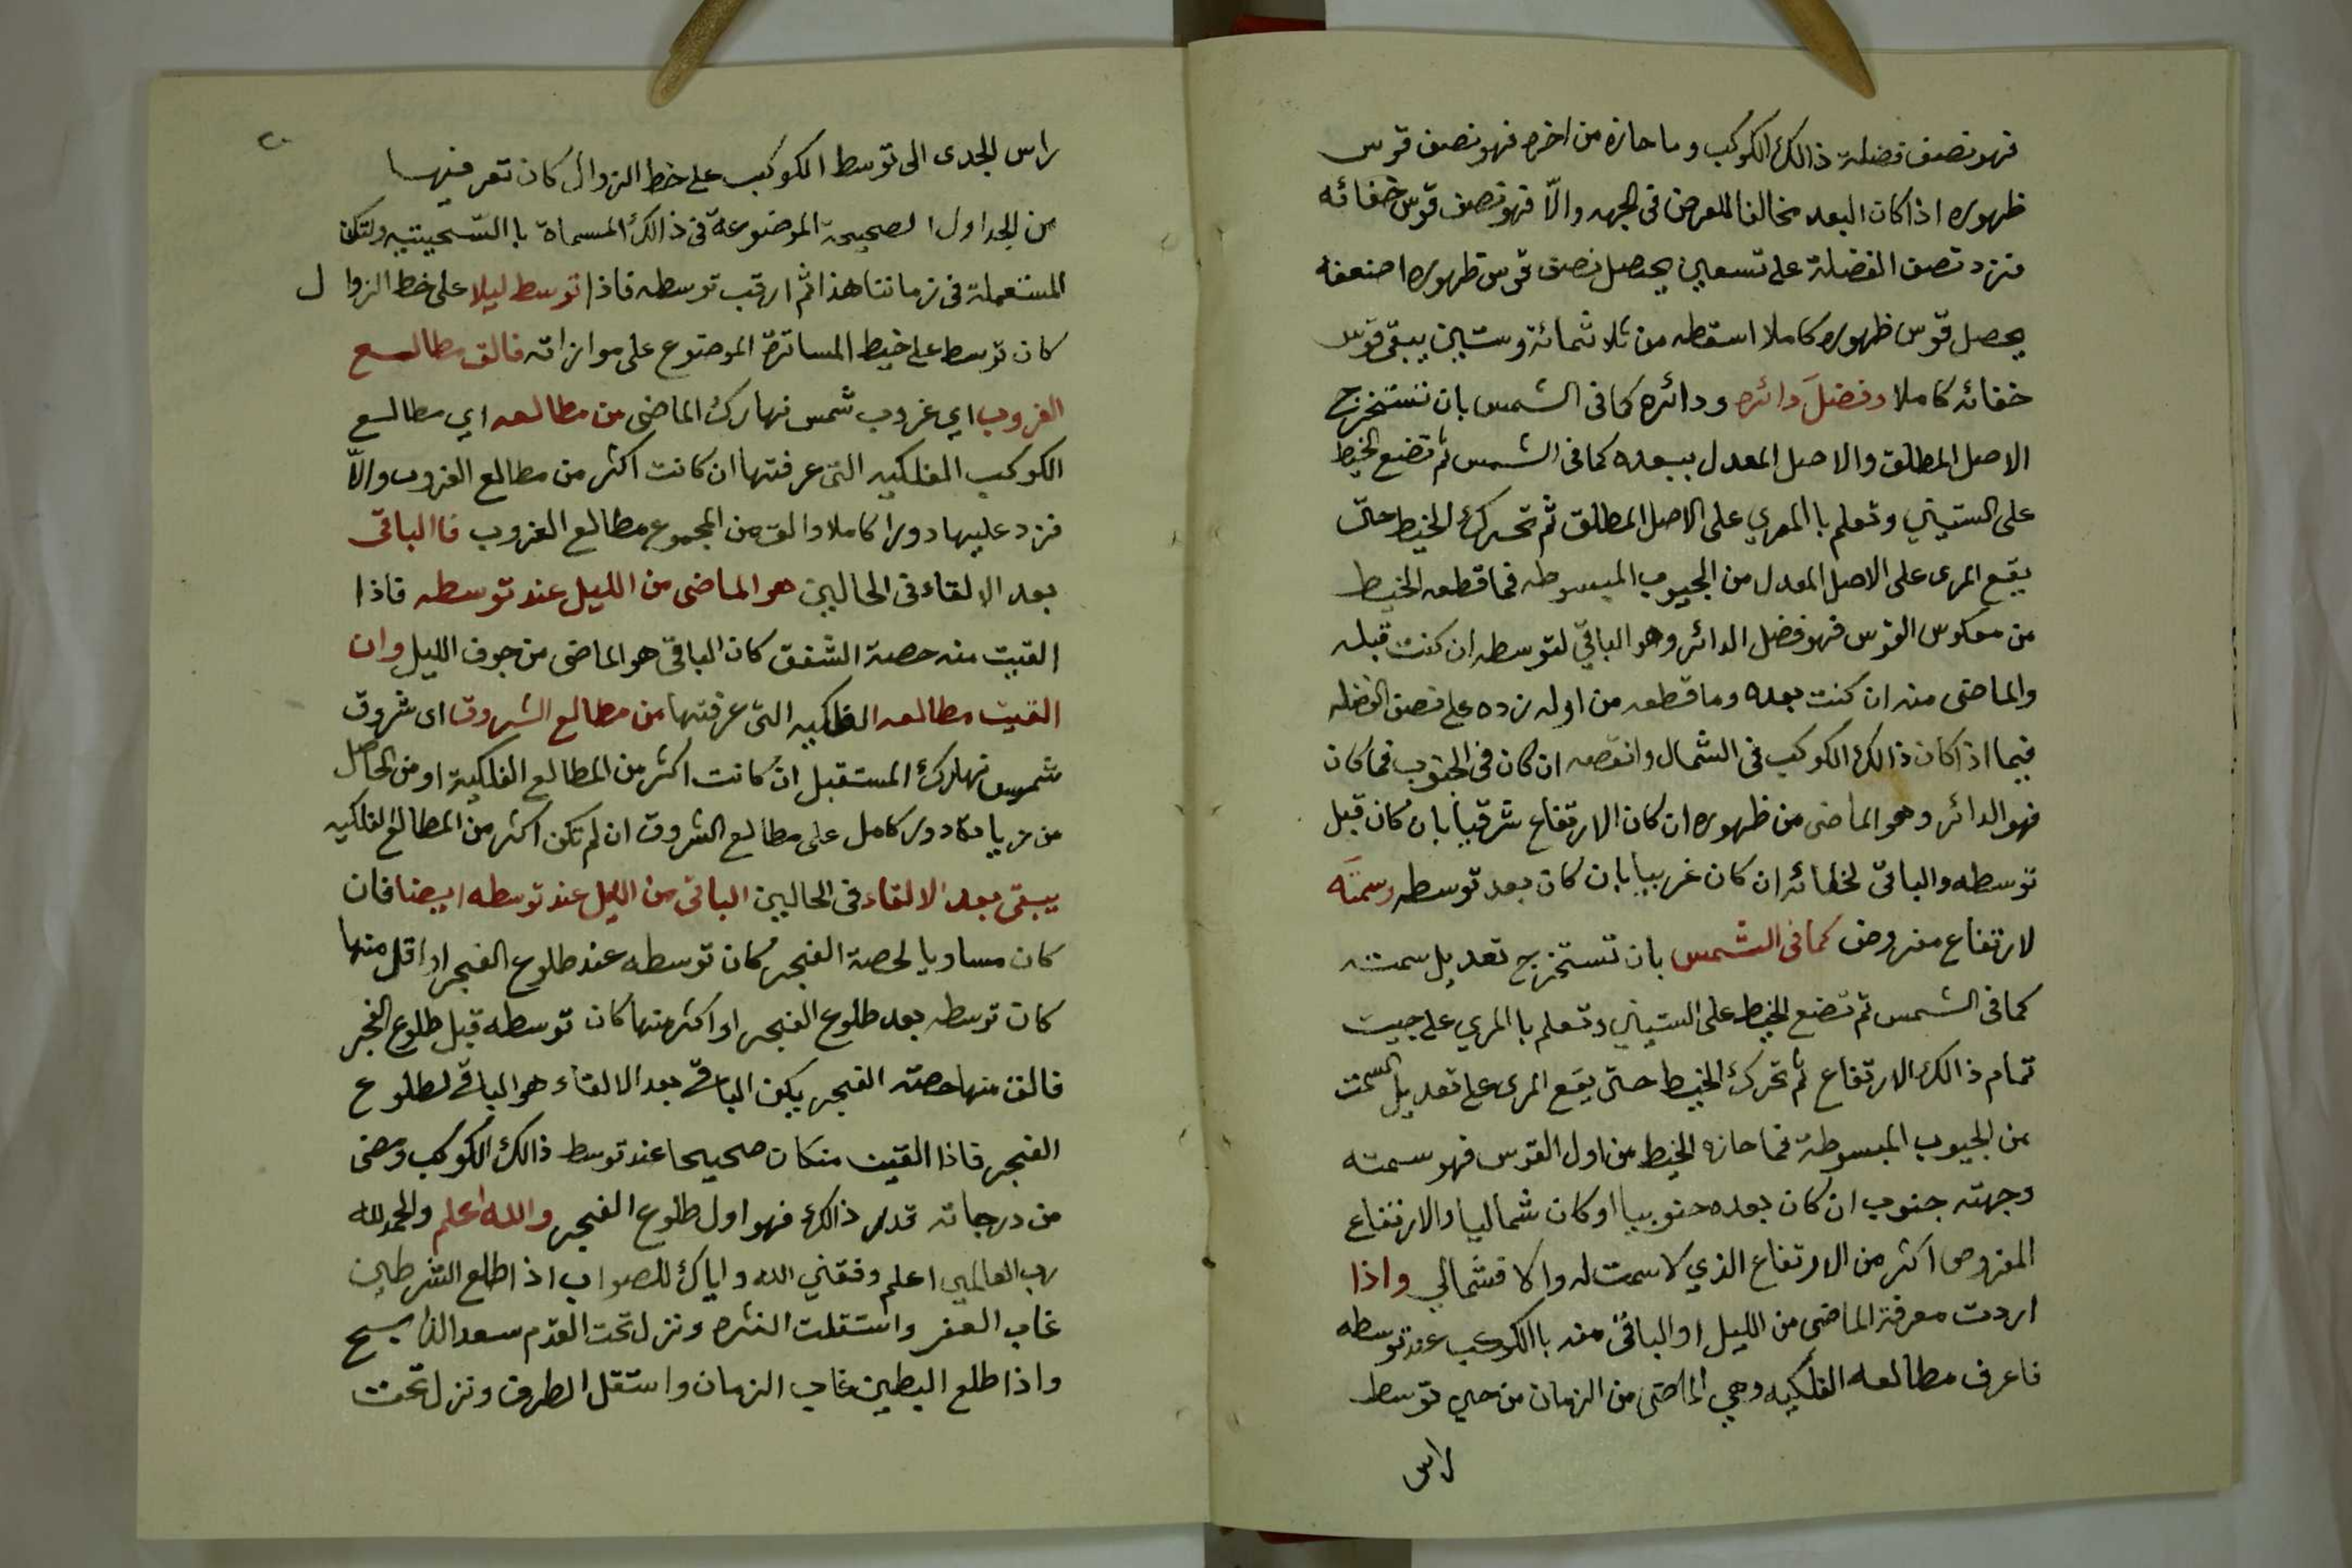 فهو نصف فضلة ذالك الكوكب وما حازه من اخره فهو نصف قوس
ظهوره اذا كان البعد مخالفا للعرض فى الجهه والّا فهو نصف قوس خفائه
فزد نصف الفضلة على تسعين يحصل نصف قوس ظهوره اضعفه
يحصل قوس ظهوره كاملا اسقطه من ثلاثمائة وستين يبقى قوس
خفائه كاملا وفضل دائره ودائره كما فى الشمس بان تستخرج
الاصل المطلق والاصل المعدل ببعده كما فى الشمس ثم تضع الخيط
على الستيني وتعلم باالمري على الاصل المطلق ثم تحرك الخيط حتى
يقع المرى على الاصل المعدل من الجيوب المبسوطه فما قطعه الخيط
من معكوس القوس فهو فضل الدائر وهو الباقي لتوسطه ان كنت قبله
والماضى منه ان كنت بعده وما قطعه من اوله زده على نصف الفضله
فيما اذا كان ذالك الكوكب فى الشمال وانقصه ان كان فى الجنوب فما كان
فهو الدائر وهو الماضى من ظهوره ان كان الارتفاع شرقيا بان كان قبل
توسطه والباقى لخفائه ان كان غربيا بان كان بعد توسطه وسمته
لارتفاع مفروض كما فى الشمس بان تستخرج تعديل سمته
كما فى الشمس ثم تضع الخيط على الستيني وتعلم باالمري على جيب
تمام ذالك الارتفاع ثم تحرك الخيط حتى يقع المرى على تعديل السمت
من الجيوب المبسوطة فما حازه الخيط من اول القوس فهو سمته
وجهته جنوب ان كان بعده جنوبيا او كان شماليا والارتفاع
المفروض اكثر من الارتفاع الذي لا سمت له والا فشمالي واذا
اردت معرفة الماضى من الليل او الباقى منه باالكوكب عند توسطه
فاعرف مطالعه الفلكيه وهي الماضى من الزمان من حين توسط
راس
٢٠
راس الجدى الى توسط الكوكب على خط الزوال كان تعرفيها
من الجداول الصحيحة الموضوعة فى ذالك المسماة با ولتكن
المستعملة فى زماننا هذا ثم ارقب توسطه فاذا توسط ليلا على خط الزوال
كان توسط على خيط المساترة الموضوع على موازاته فالق مطالع
الغروب اي غروب شمس نهارك الماضى من مطالعه اي مطالع
الكوكب الفلكيه التى عرفتها ان كانت اكثر من مطالع الغروب والّا
فزد عليها دورا كاملا والق من المجموع مطالع الغروب فاالباقى
بعد الالقاء فى الحالين هو الماضى من الليل عند توسطه فاذا
القيت منه حصة الشفق كان الباقى هو الماضى من جوف الليل وان
القيت مطالعه الفلكيه التى عرفتها من مطالع الشروق اى شروق
شمس نهارك المستقبل ان كانت اكثر من المطالع الفلكية او من الحاصل
من زيادة دور كامل على مطالع الشروق ان لم تكن اكثر من المطالع الفلكيه
يبقى بعد الالقاء فى الحالين الباقى من الليل عند توسطه ايضا فان
كان مساويا لحصة الفجر كان توسطه عند طلوع الفجر او اقل منها
كان توسطه بعد طلوع الفجر او اكثر منها كان توسطه قبل طلوع الفجر
فالق منها حصة الفجر يكن الباقي بعد الالقاء هو الباقي لطلوع
الفجر فاذا القيت منكان صحيحا عند توسط ذالك الكوكب ومضى
من درجاته قدر ذالك فهو اول طلوع الفجر والله اعلم والحمد لله
رب العالمين اعلم وفقني الله واياك للصواب اذا طلع الشرطين
غاب الغفر واستقلت النثره ونزل تحت القدم سعد الذابح
واذا طلع البطين غاب الزبان واستقل الطرف ونزل تحت